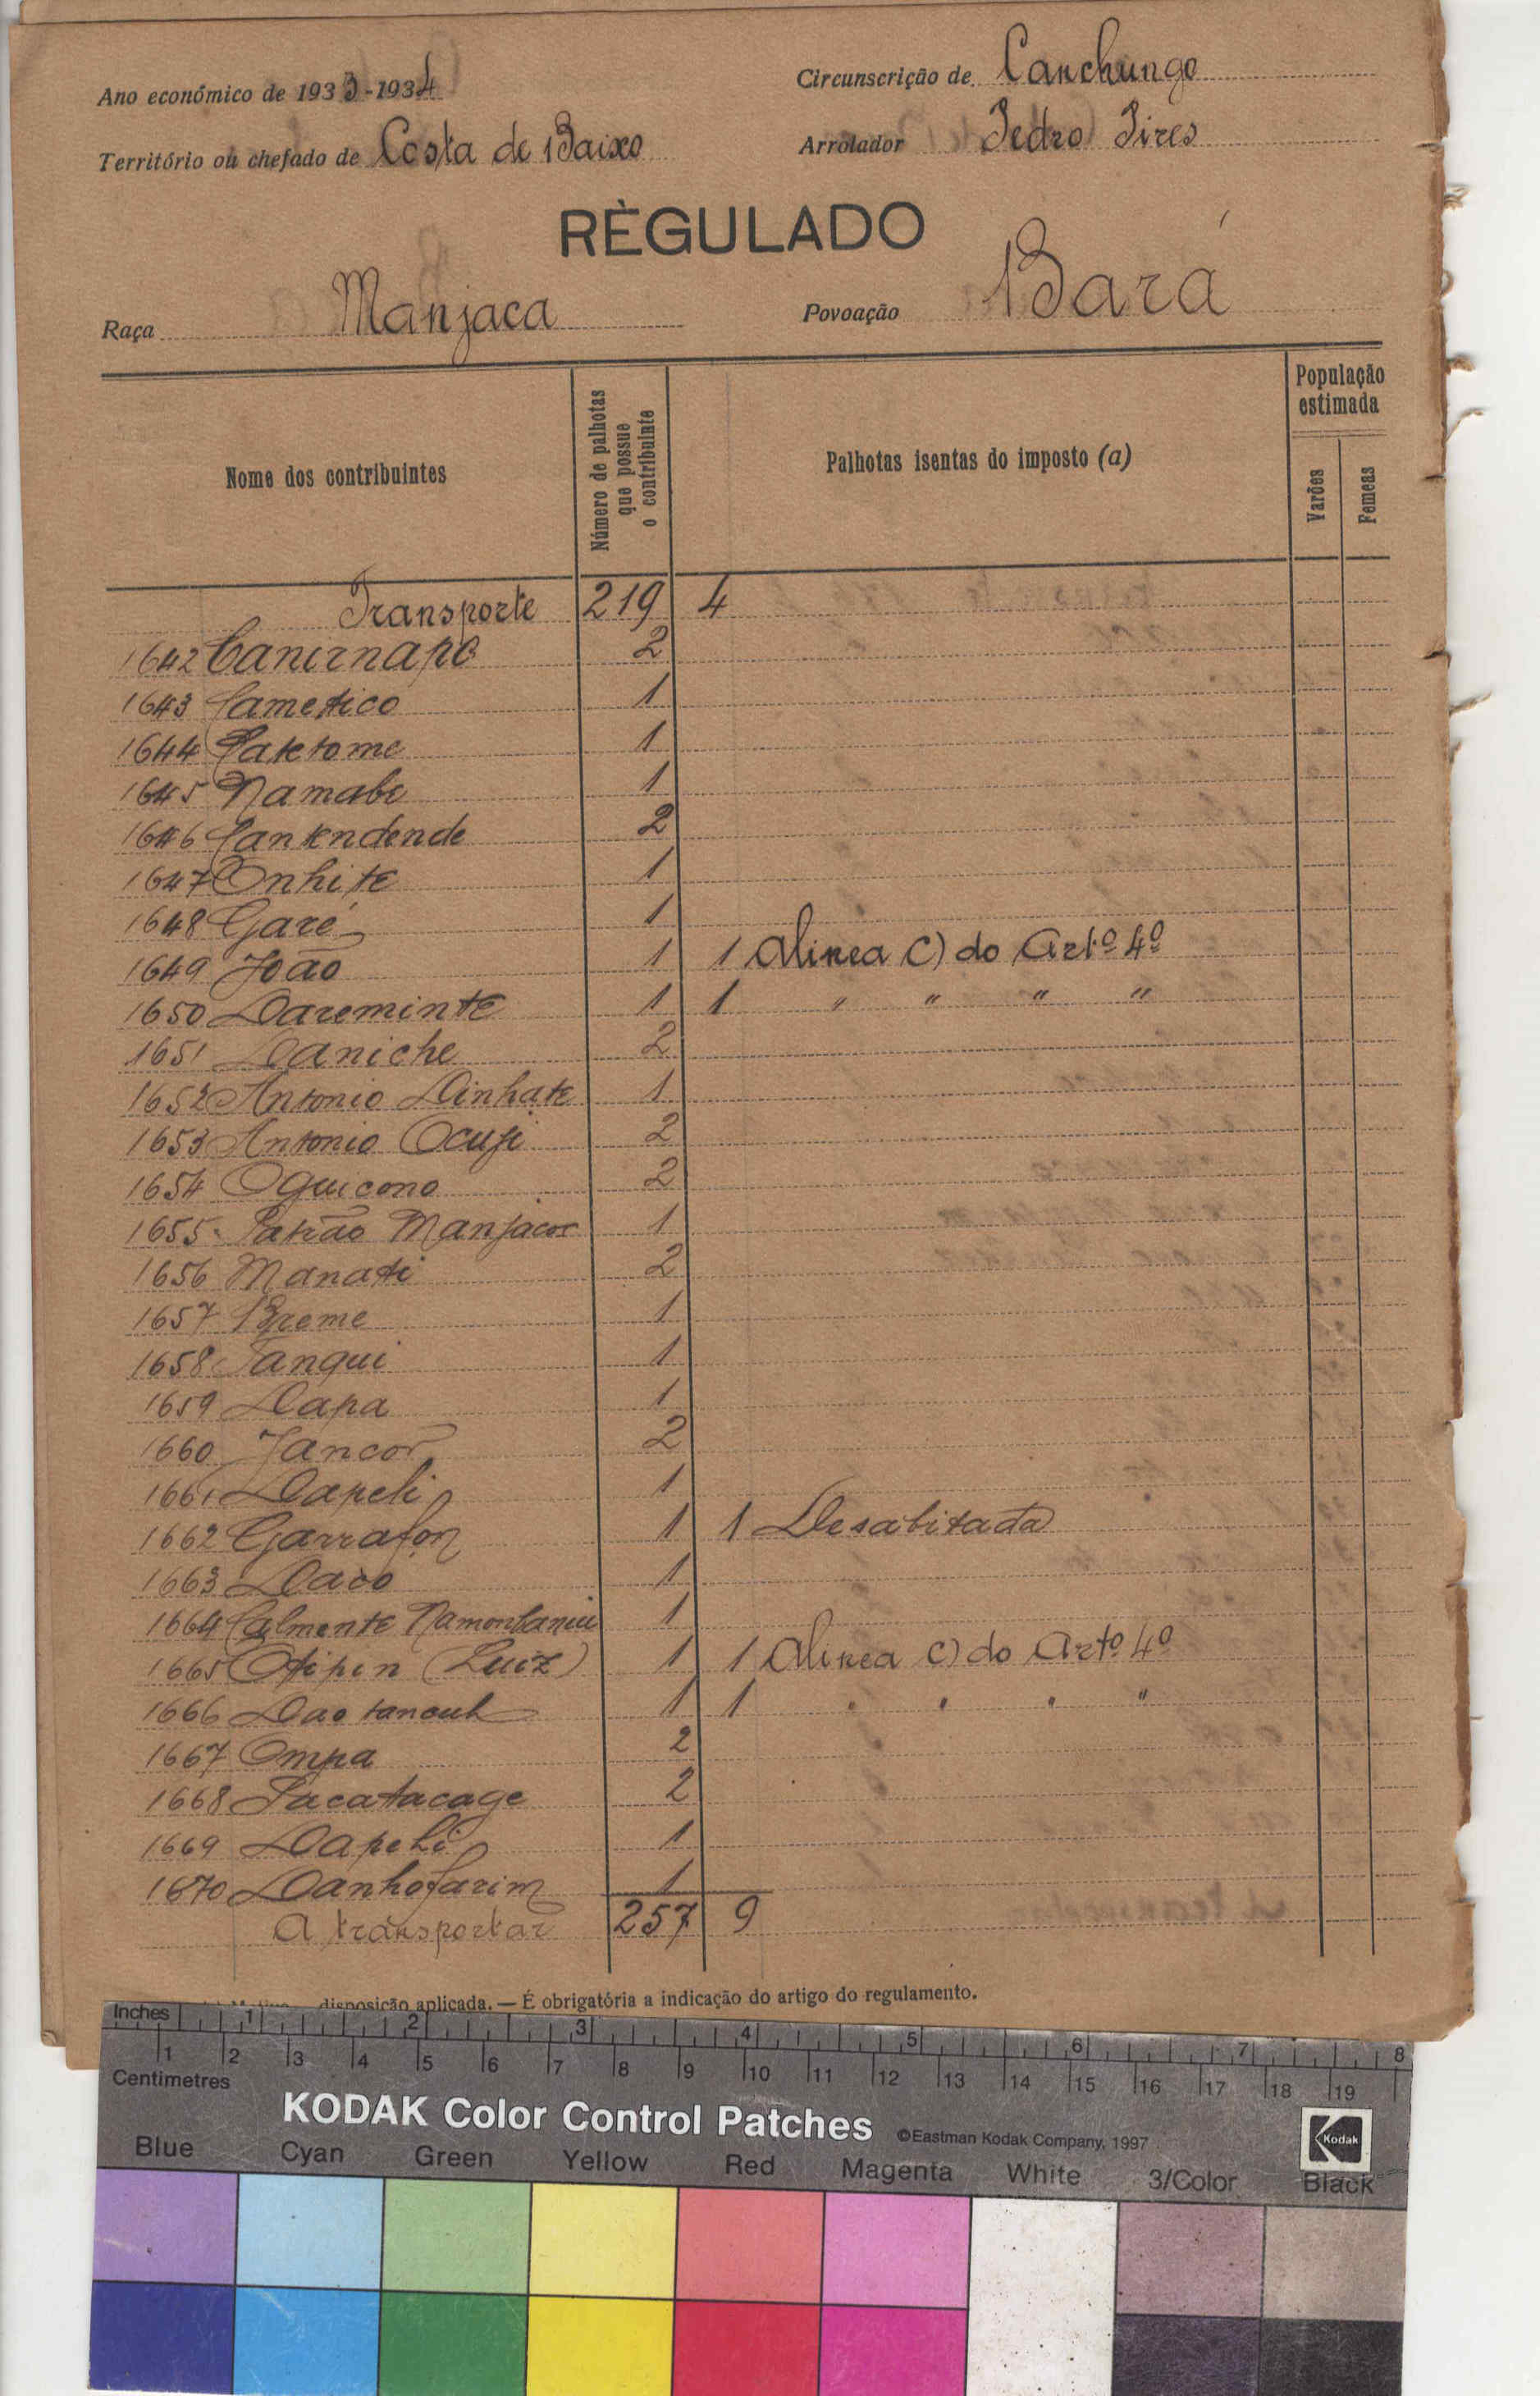 Ano económico de 1933-1934
Circunscrição de Canchungo
Território ou chefado de Costa de Baixo
Arrolador Pedro Pires
RÈGULADO
Raça Manjaca
Povoação Bará
Nome dos contribuintes
Número de palhotas que possue o contribuinte
Palhotas isentas do imposto (a)
População estimada
Varões
Femeas
Transporte 219 4
1642 Canirnapo 2
1643 Cametico 1
1644 Paktome 1
1645 Namabe 1
1646 Cantendende 2
1647 Onhite 1
1648 Garé 1
1649 João 1 1 Alinea C) do Artº 4º
1650 Dareminte 1 1 " " " "
1651 Daniche 2
1652 Antonio Dinhate 1
1653 Antonio Ocufi 2
1654 Oguicono 2
1655 Patrão Manjacor 1
1656 Manati 2
1657 Breme 1
1658 Tanqui 1
1659 Dapa 1
1660 Jancor 2
1661 Dapeli 1
1662 Garrafon 1 1 Desabitada
1663 Daoo 1
1664 Calmente 1
1665 Otipin (Luiz) 1 1 Alinea C) do Artº 4º
1666 Dao tancuh 1 1 " " " "
1667 Ompa 2
1668 Pacatacage 2
1669 Dapeli 1
1670 Danhofarim 1
A transportar 257 9
disposição aplicada. — É obrigatória a indicação do artigo do regulamento.
Inches 1 2 3 4 5 6 7 8
1 2 3 4 5 6 7 8 9 10 11 12 13 14 15 16 17 18 19
Centimetres
KODAK Color Control Patches ©Eastman Kodak Company, 1997 Kodak
Blue Cyan Green Yellow Red Magenta White 3/Color Black